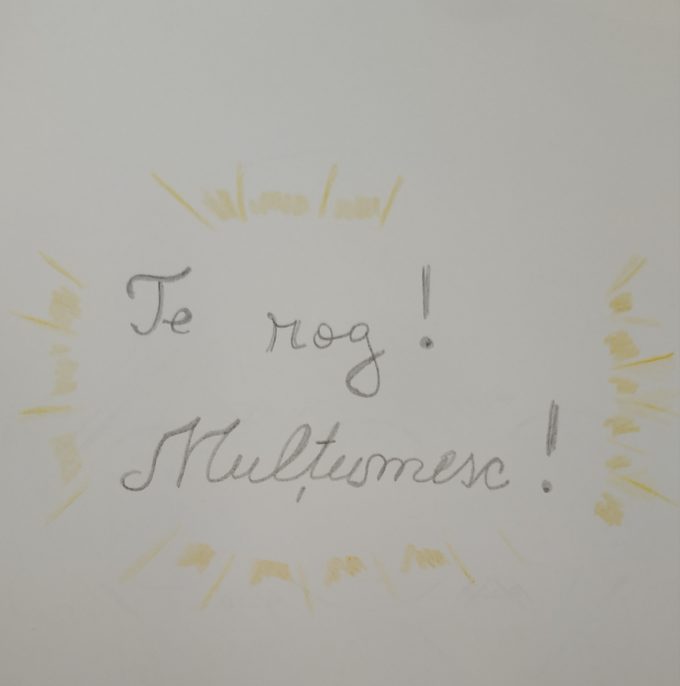 Te rog!
Mulțumesc!